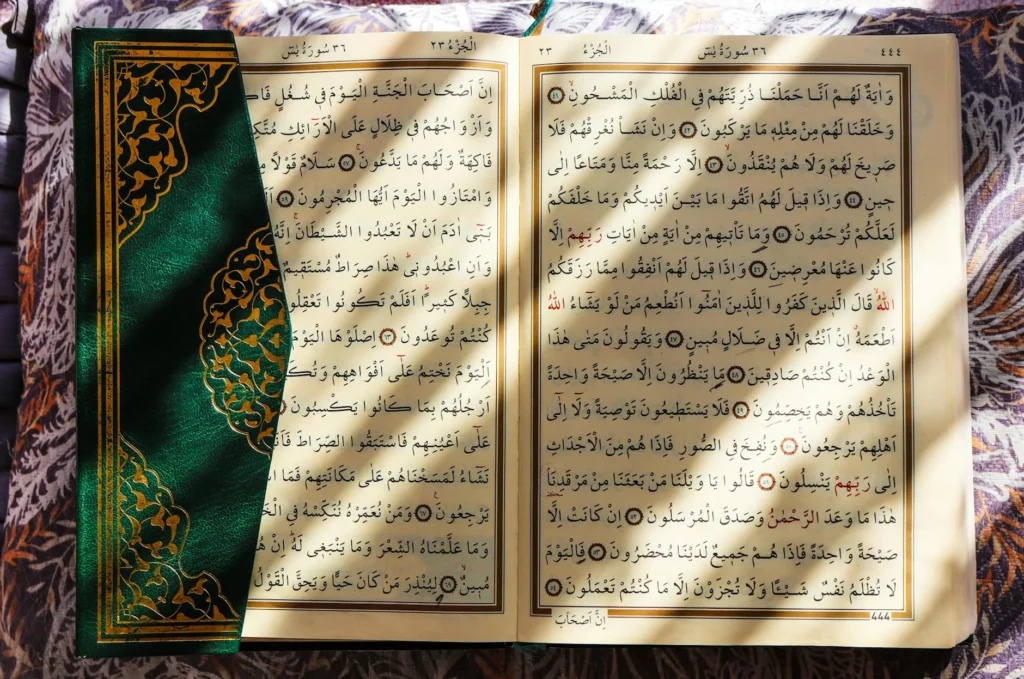 ٤٤٤ ٣٦ سُورَةُ يٰسٓ اَلْجُزْءُ ٢٣
وَاٰيَةٌ لَهُمْ اَنَّا حَمَلْنَا ذُرِّيَّتَهُمْ فِي الْفُلْكِ الْمَشْحُونِۙ ﴿٤١﴾
وَخَلَقْنَا لَهُمْ مِنْ مِثْلِهٖ مَا يَرْكَبُونَ ﴿٤٢﴾ وَاِنْ نَشَأْ نُغْرِقْهُمْ فَلَا
صَرٖيخَ لَهُمْ وَلَا هُمْ يُنْقَذُونَۙ ﴿٤٣﴾ اِلَّا رَحْمَةً مِنَّا وَمَتَاعًا اِلٰى
حٖينٍ ﴿٤٤﴾ وَاِذَا قٖيلَ لَهُمُ اتَّقُوا مَا بَيْنَ اَيْدٖيكُمْ وَمَا خَلْفَكُمْ
لَعَلَّكُمْ تُرْحَمُونَ ﴿٤٥﴾ وَمَا تَأْتٖيهِمْ مِنْ اٰيَةٍ مِنْ اٰيَاتِ رَبِّهِمْ اِلَّا
كَانُوا عَنْهَا مُعْرِضٖينَ ﴿٤٦﴾ وَاِذَا قٖيلَ لَهُمْ اَنْفِقُوا مِمَّا رَزَقَكُمُ
اللّٰهُۙ قَالَ الَّذٖينَ كَفَرُوا لِلَّذٖينَ اٰمَنُٓوا اَنُطْعِمُ مَنْ لَوْ يَشَٓاءُ اللّٰهُ
اَطْعَمَهُۗ اِنْ اَنْتُمْ اِلَّا فٖي ضَلَالٍ مُبٖينٍ ﴿٤٧﴾ وَيَقُولُونَ مَتٰى هٰذَا
الْوَعْدُ اِنْ كُنْتُمْ صَادِقٖينَ ﴿٤٨﴾ مَا يَنْظُرُونَ اِلَّا صَيْحَةً وَاحِدَةً
تَأْخُذُهُمْ وَهُمْ يَخِصِّمُونَ ﴿٤٩﴾ فَلَا يَسْتَطٖيعُونَ تَوْصِيَةً وَلَٓا اِلٰٓى
اَهْلِهِمْ يَرْجِعُونَ۟ ﴿٥٠﴾ وَنُفِخَ فِي الصُّورِ فَاِذَا هُمْ مِنَ الْاَجْدَاثِ
اِلٰى رَبِّهِمْ يَنْسِلُونَ ﴿٥١﴾ قَالُوا يَا وَيْلَنَا مَنْ بَعَثَنَا مِنْ مَرْقَدِنَاۢ
هٰذَا مَا وَعَدَ الرَّحْمٰنُ وَصَدَقَ الْمُرْسَلُونَ ﴿٥٢﴾ اِنْ كَانَتْ اِلَّا
صَيْحَةً وَاحِدَةً فَاِذَا هُمْ جَمٖيعٌ لَدَيْنَا مُحْضَرُونَ ﴿٥٣﴾ فَالْيَوْمَ
لَا تُظْلَمُ نَفْسٌ شَيْـًٔا وَلَا تُجْزَوْنَ اِلَّا مَا كُنْتُمْ تَعْمَلُونَ ﴿٥٤﴾
444 اِنَّ اَصْحَابَ
اَلْجُزْءُ ٢٣ ٣٦ سُورَةُ يٰسٓ
اِنَّ اَصْحَابَ الْجَنَّةِ الْيَوْمَ فٖي شُغُلٍ
وَاَزْوَاجُهُمْ فٖي ظِلَالٍ عَلَى الْاَرَٓائِكِ
فَاكِهَةٌ وَلَهُمْ مَا يَدَّعُونَۚ ﴿٥٧﴾ سَلَامٌ قَوْلًا
وَامْتَازُوا الْيَوْمَ اَيُّهَا الْمُجْرِمُونَ ﴿٥٩﴾
يَا بَنٖٓي اٰدَمَ اَنْ لَا تَعْبُدُوا الشَّيْطَانَۚ اِنَّهُ
وَاَنِ اعْبُدُونٖيؕ هٰذَا صِرَاطٌ مُسْتَقٖيمٌ
جِبِلًّا كَثٖيرًاؕ اَفَلَمْ تَكُونُوا تَعْقِلُو
كُنْتُمْ تُوعَدُونَ ﴿٦٣﴾ اِصْلَوْهَا الْيَوْمَ
اَلْيَوْمَ نَخْتِمُ عَلٰٓى اَفْوَاهِهِمْ وَتُكَ
اَرْجُلُهُمْ بِمَا كَانُوا يَكْسِبُونَ
عَلٰٓى اَعْيُنِهِمْ فَاسْتَبَقُوا الصِّرَاطَ فَاَنّٰ
نَشَٓاءُ لَمَسَخْنَاهُمْ عَلٰى مَكَانَتِهِمْ فَمَا
يَرْجِعُونَ۟ ﴿٦٧﴾ وَمَنْ نُعَمِّرْهُ نُنَكِّسْهُ فِي
وَمَا عَلَّمْنَاهُ الشِّعْرَ وَمَا يَنْبَغٖي لَهُؕ اِنْ
مُبٖينٌۙ ﴿٦٩﴾ لِيُنْذِرَ مَنْ كَانَ حَيًّا وَيَحِقَّ الْقَوْلُ